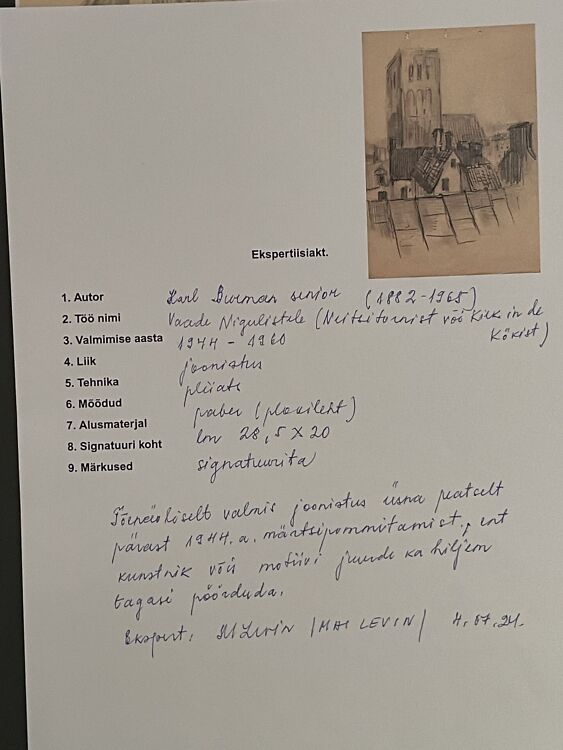 Ekspertiisiakt.
1. Autor Karl Burman senior (1882-1965)
2. Töö nimi Vaade Nigulistele (Neitsitornist või Kiek in de Kökist)
3. Valmimise aasta 1944 - 1960
4. Liik joonistus
5. Tehnika pliiats
6. Mõõdud paber (plokileht)
7. Alusmaterjal lm 28,5 X 20
8. Signatuuri koht
9. Märkused signatuurita
Tõenäoliselt valmis joonistus üsna peatselt
pärast 1944. a. märtsipommitamist, ent
kunstnik võis motiivi juurde ka hiljem
tagasi pöörduda.
Ekspert: M Levin /MAI LEVIN/ 4.07.24.